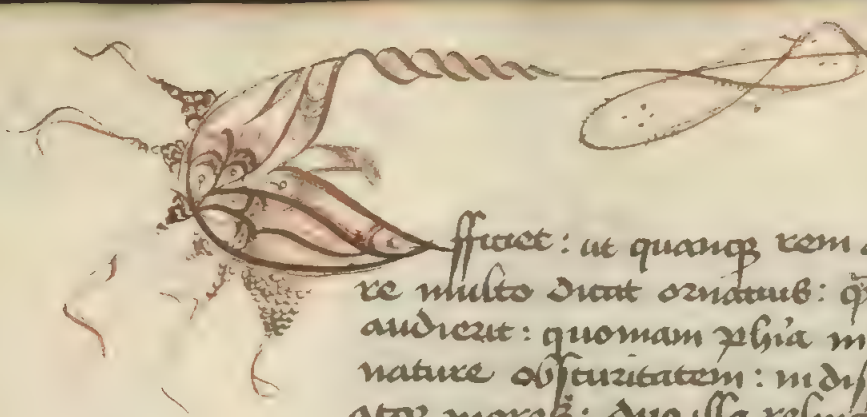 fficiet : ut quancꝗ rem
re multo dicat ornatius :
audierit : quoniam phı̄a
nature obscuritatem : in
duo illa